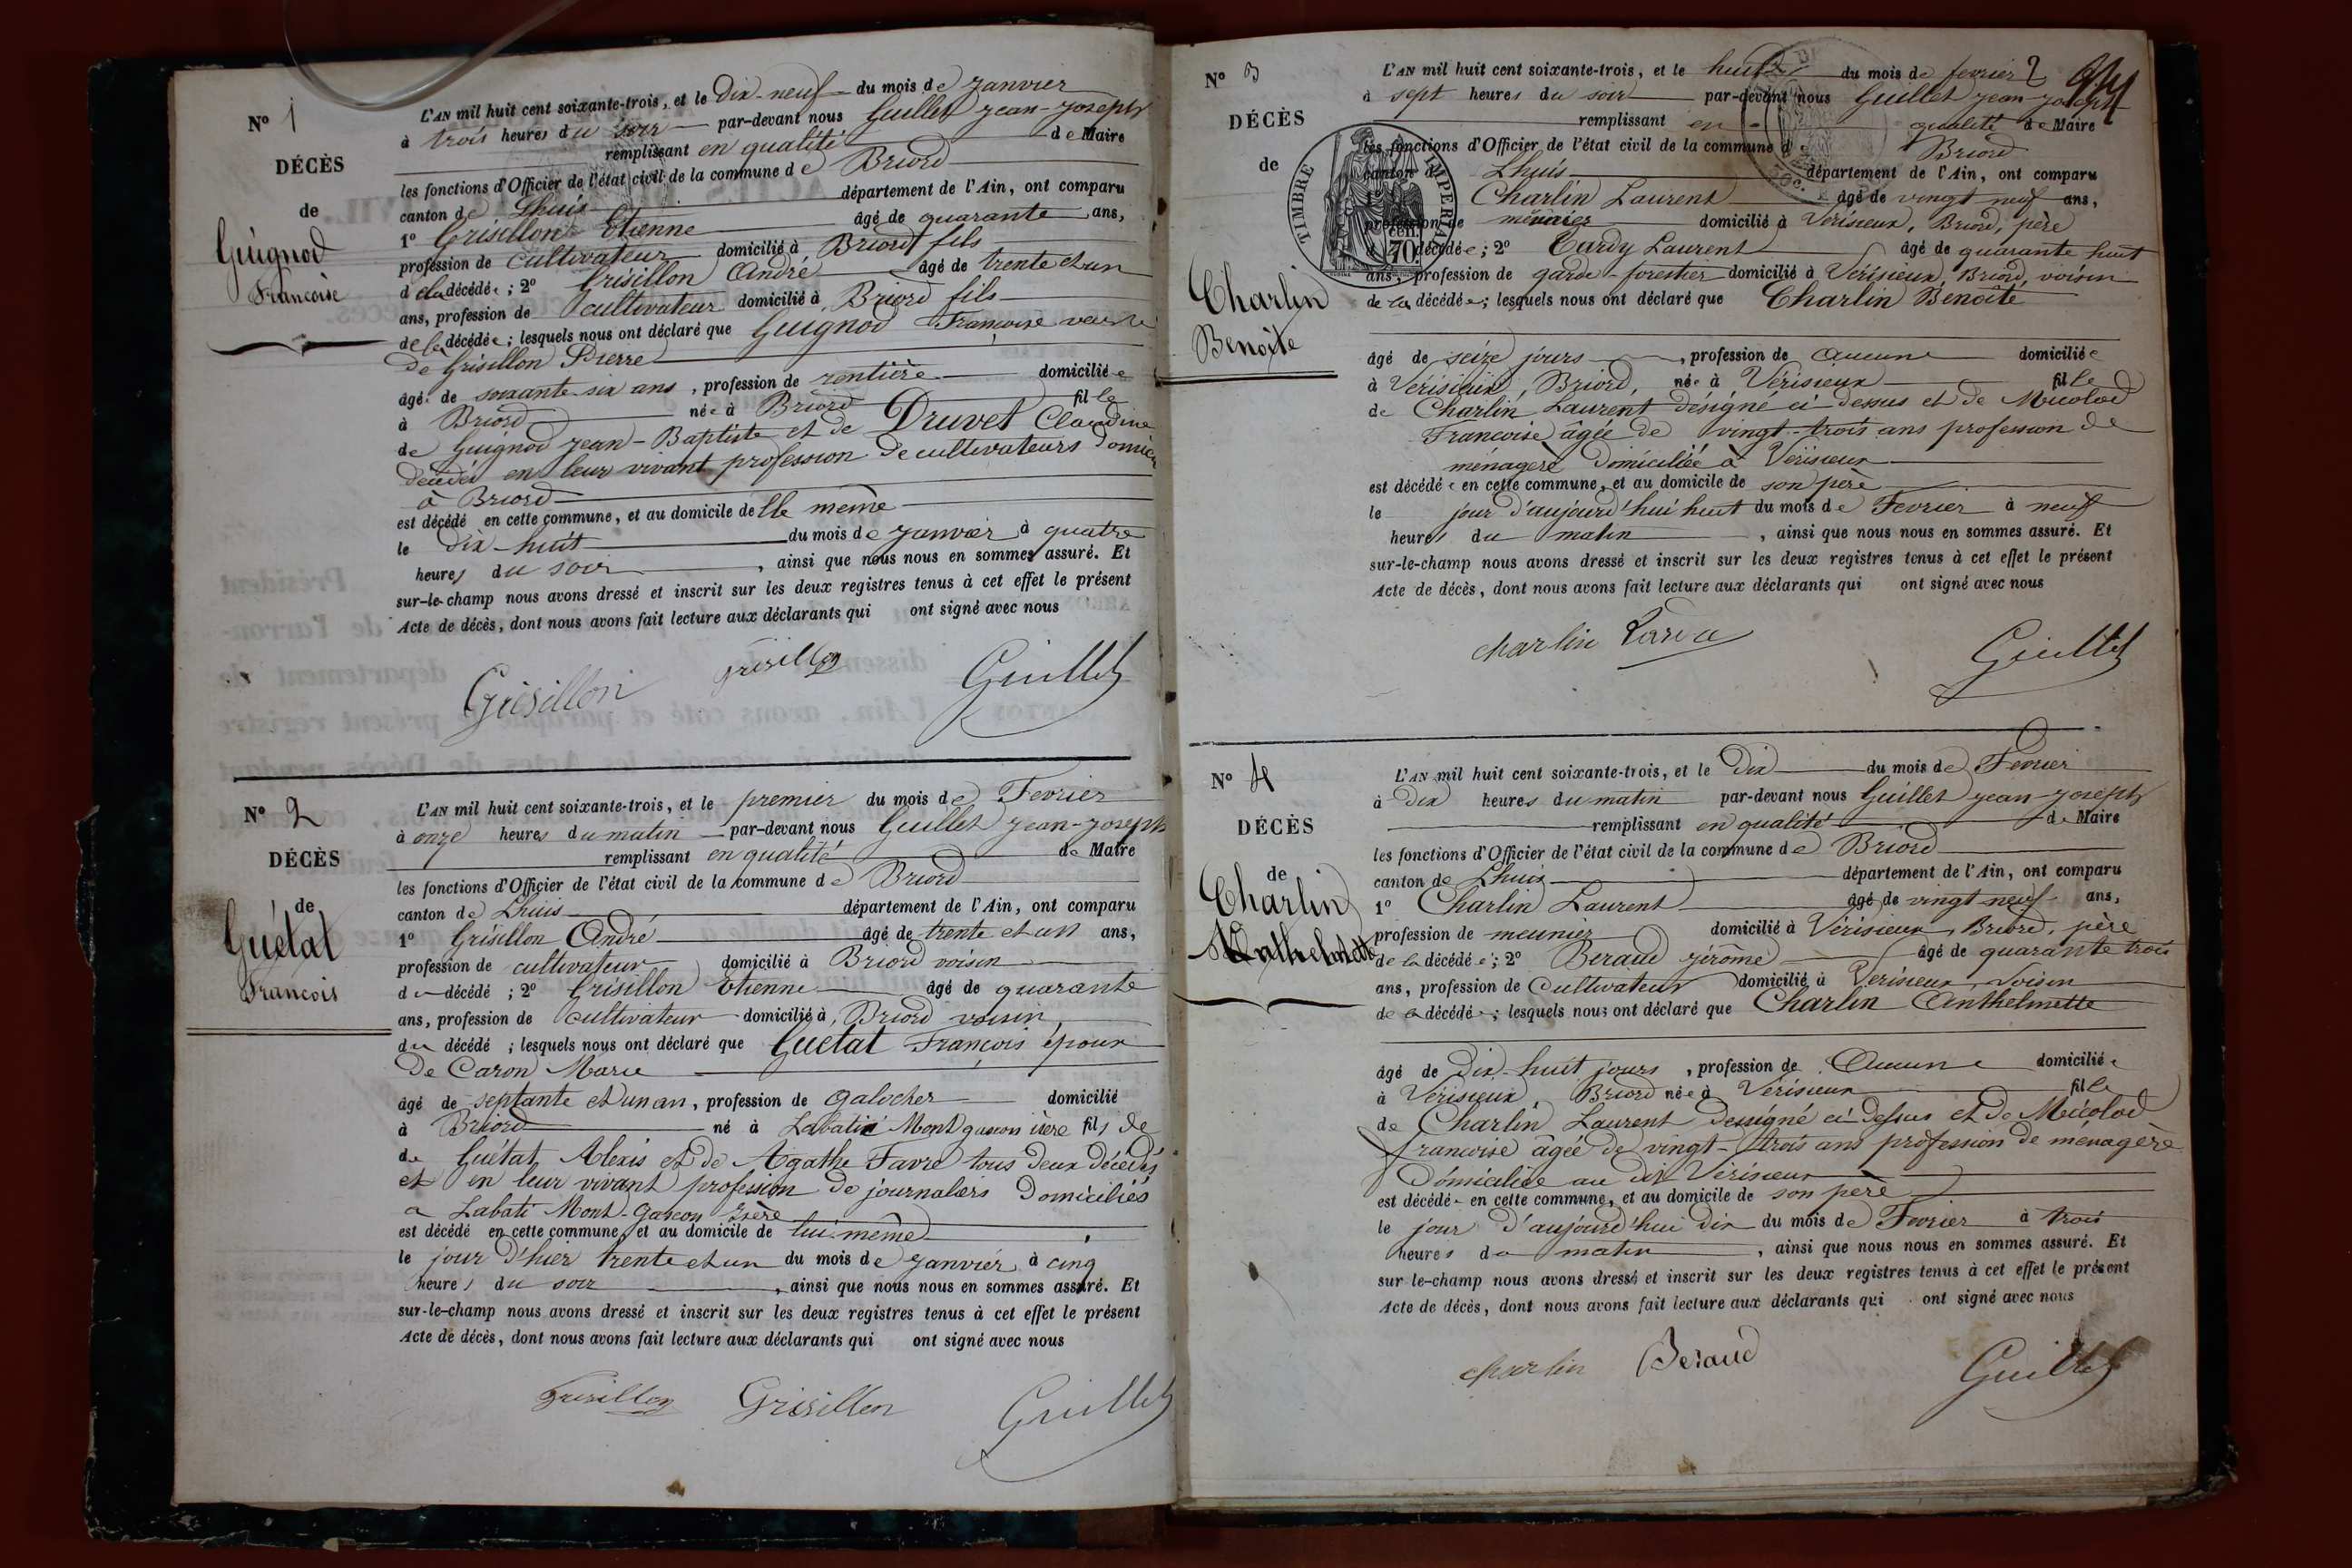 N° 1
DÉCÈS
de
Guignod
Francoise
L'AN mil huit cent soixante-trois, et le Dix-neuf du mois de Janvier
à trois heures du soir par-devant nous Guillet Jean-Joseph
remplissant en qualité de Maire
les fonctions d'Officier de l'état civil de la commune de Briord
canton de Lhuis département de l'Ain, ont comparu
1° Grisillon Etienne âgé de quarante ans,
profession de cultivateur domicilié à Briord fils
de la décédée ; 2° Grisillon André âgé de trente et un
ans, profession de cultivateur domicilié à Briord fils
de la décédée ; lesquels nous ont déclaré que Guignod Francoise veuve
de Grisillon Pierre
âgé de soixante six ans, profession de rentière domiciliée
à Briord née à Briord fille
de Guignod Jean-Baptiste et de Druvet Claudine
décédés en leur vivant profession de cultivateurs
à Briord
est décédé en cette commune, et au domicile de elle même
le Dix-huit du mois de Janvier à quatre
heures du soir, ainsi que nous nous en sommes assuré. Et
sur-le-champ nous avons dressé et inscrit sur les deux registres tenus à cet effet le présent
Acte de décès, dont nous avons fait lecture aux déclarants qui ont signé avec nous
Grisillon Grisillon Guillet
N° 2
DÉCÈS
de
Guétat
Francois
L'AN mil huit cent soixante-trois, et le premier du mois de Fevrier
à onze heures du matin par-devant nous Guillet Jean-Joseph
remplissant en qualité de Maire
les fonctions d'Officier de l'état civil de la commune de Briord
canton de Lhuis département de l'Ain, ont comparu
1° Grisillon André âgé de trente et un ans,
profession de cultivateur domicilié à Briord voisin
du décédé ; 2° Grisillon Etienne âgé de quarante
ans, profession de cultivateur domicilié à Briord voisin
du décédé ; lesquels nous ont déclaré que Guétat François époux
De Caron Marie
âgé de septante et un an, profession de galocher domicilié
à Briord né à Labatie Mont gascon isère fils de
de Guétat Alexis et de Agathe Favre tous deux décédés
et en leur vivant profession de journaliers Domiciliés
a Labati Mont-Gascon Isère
est décédé en cette commune, et au domicile de lui-même
le jour d'hier trente et un du mois de Janvier à cinq
heures du soir, ainsi que nous nous en sommes assuré. Et
sur-le-champ nous avons dressé et inscrit sur les deux registres tenus à cet effet le présent
Acte de décès, dont nous avons fait lecture aux déclarants qui ont signé avec nous
Grisillon Grisillon Guillet
N° 3
DÉCÈS
de
Charlin
Benoîte
TIMBRE IMPERIAL
70 cen.
2
L'AN mil huit cent soixante-trois, et le huit du mois de fevrier
à sept heures du soir par-devant nous Guillet Jean-Joseph
remplissant en qualité de Maire
les fonctions d'Officier de l'état civil de la commune de Briord
canton de Lhuis département de l'Ain, ont comparu
1° Charlin Laurent âgé de vingt neuf ans,
profession de meunier domicilié à Vérisieux, Briord, père
décédée ; 2° Curdy Laurent âgé de quarante huit
ans, profession de garde-forestier domicilié à Vérisieux, Briord, voisin
de la décédée ; lesquels nous ont déclaré que Charlin Benoîte
âgé de seize jours, profession de aucune domiciliée
à Vérisieux, Briord, née à Vérisieux fille
de Charlin Laurent désigné ci dessus et de Micolod
Francoise âgée de vingt-trois ans profession de
ménagère Domiciliée à Verisieux
est décédée en cette commune, et au domicile de son père
le jour d'aujourd'hui huit du mois de Fevrier à neuf
heures du matin, ainsi que nous nous en sommes assuré. Et
sur-le-champ nous avons dressé et inscrit sur les deux registres tenus à cet effet le présent
Acte de décès, dont nous avons fait lecture aux déclarants qui ont signé avec nous
Charlin Guillet
N° 4
DÉCÈS
de
Charlin
Anthelmette
L'AN mil huit cent soixante-trois, et le Dix du mois de Fevrier
à Dix heures du matin par-devant nous Guillet Jean-Joseph
remplissant en qualité de Maire
les fonctions d'Officier de l'état civil de la commune de Briord
canton de Lhuis département de l'Ain, ont comparu
1° Charlin Laurent âgé de vingt neuf ans,
profession de meunier domicilié à Vérisieux, Briord, père
de la décédée ; 2° Beraud Jérôme âgé de quarante trois
ans, profession de Cultivateur domicilié à Verisieux, Voisin
de la décédée ; lesquels nous ont déclaré que Charlin Anthelmette
âgé de Dix-huit jours, profession de Aucune domiciliée
à Vérisieux, Briord née à Vérisieux fille
de Charlin Laurent dessigné ci-dessus et de Micolod
francoise âgée de vingt-trois ans profession de ménagère
Domiciliée au dit Vérisieux
est décédée en cette commune, et au domicile de son père
le jour d'aujourd'hui Dix du mois de Fevrier à trois
heures du matin, ainsi que nous nous en sommes assuré. Et
sur-le-champ nous avons dressé et inscrit sur les deux registres tenus à cet effet le présent
Acte de décès, dont nous avons fait lecture aux déclarants qui ont signé avec nous
Charlin Beraud Guillet